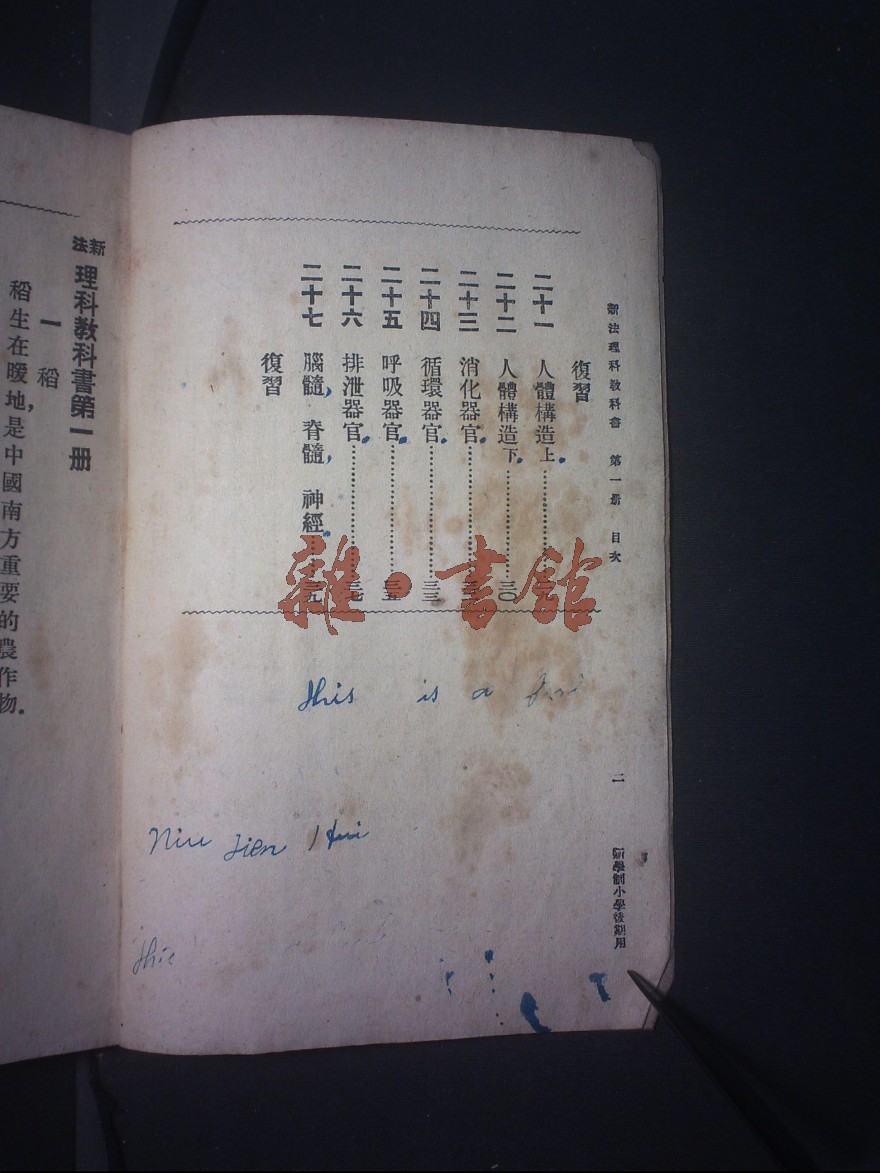 新法理科教科書 第一册 目次
復習
二十一 人體構造上
二十二 人體構造下 三〇
二十三 消化器官
二十四 循環器官 三三
二十五 呼吸器官 三五
二十六 排泄器官 三七
二十七 腦髓, 脊髓, 神經 三九
復習
二
新學制小學後期用
雜·書館
this is a
Niu Jien Hui
this
新法理科教科書第一册
一 稻
稻生在暖地,是中國南方重要的農作物.